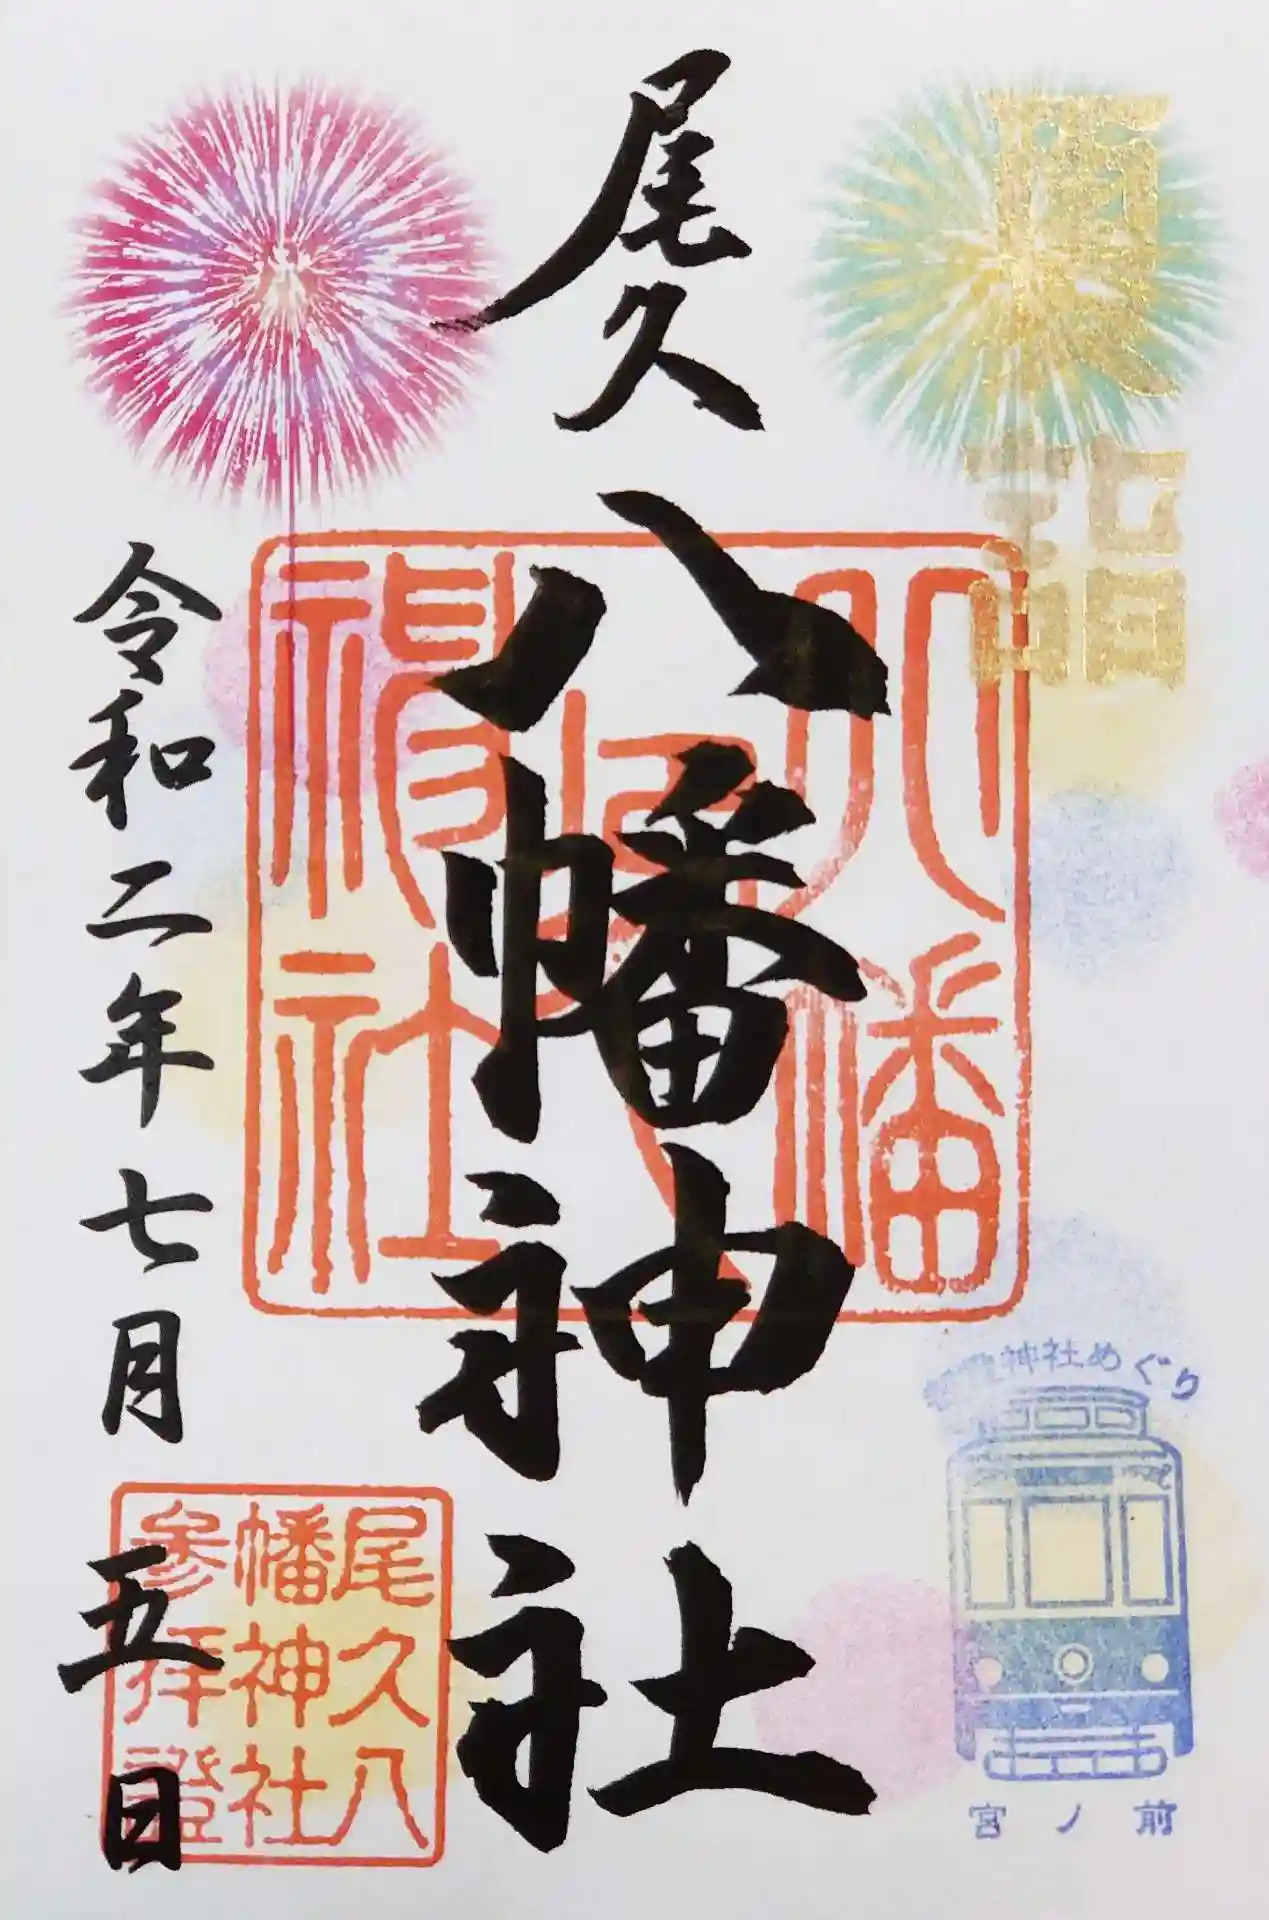 夏詣
都電神社めぐり
宮ノ前
尾久八幡神社
八幡
神社
令和二年七月五日
尾久八
幡神社
參拝證